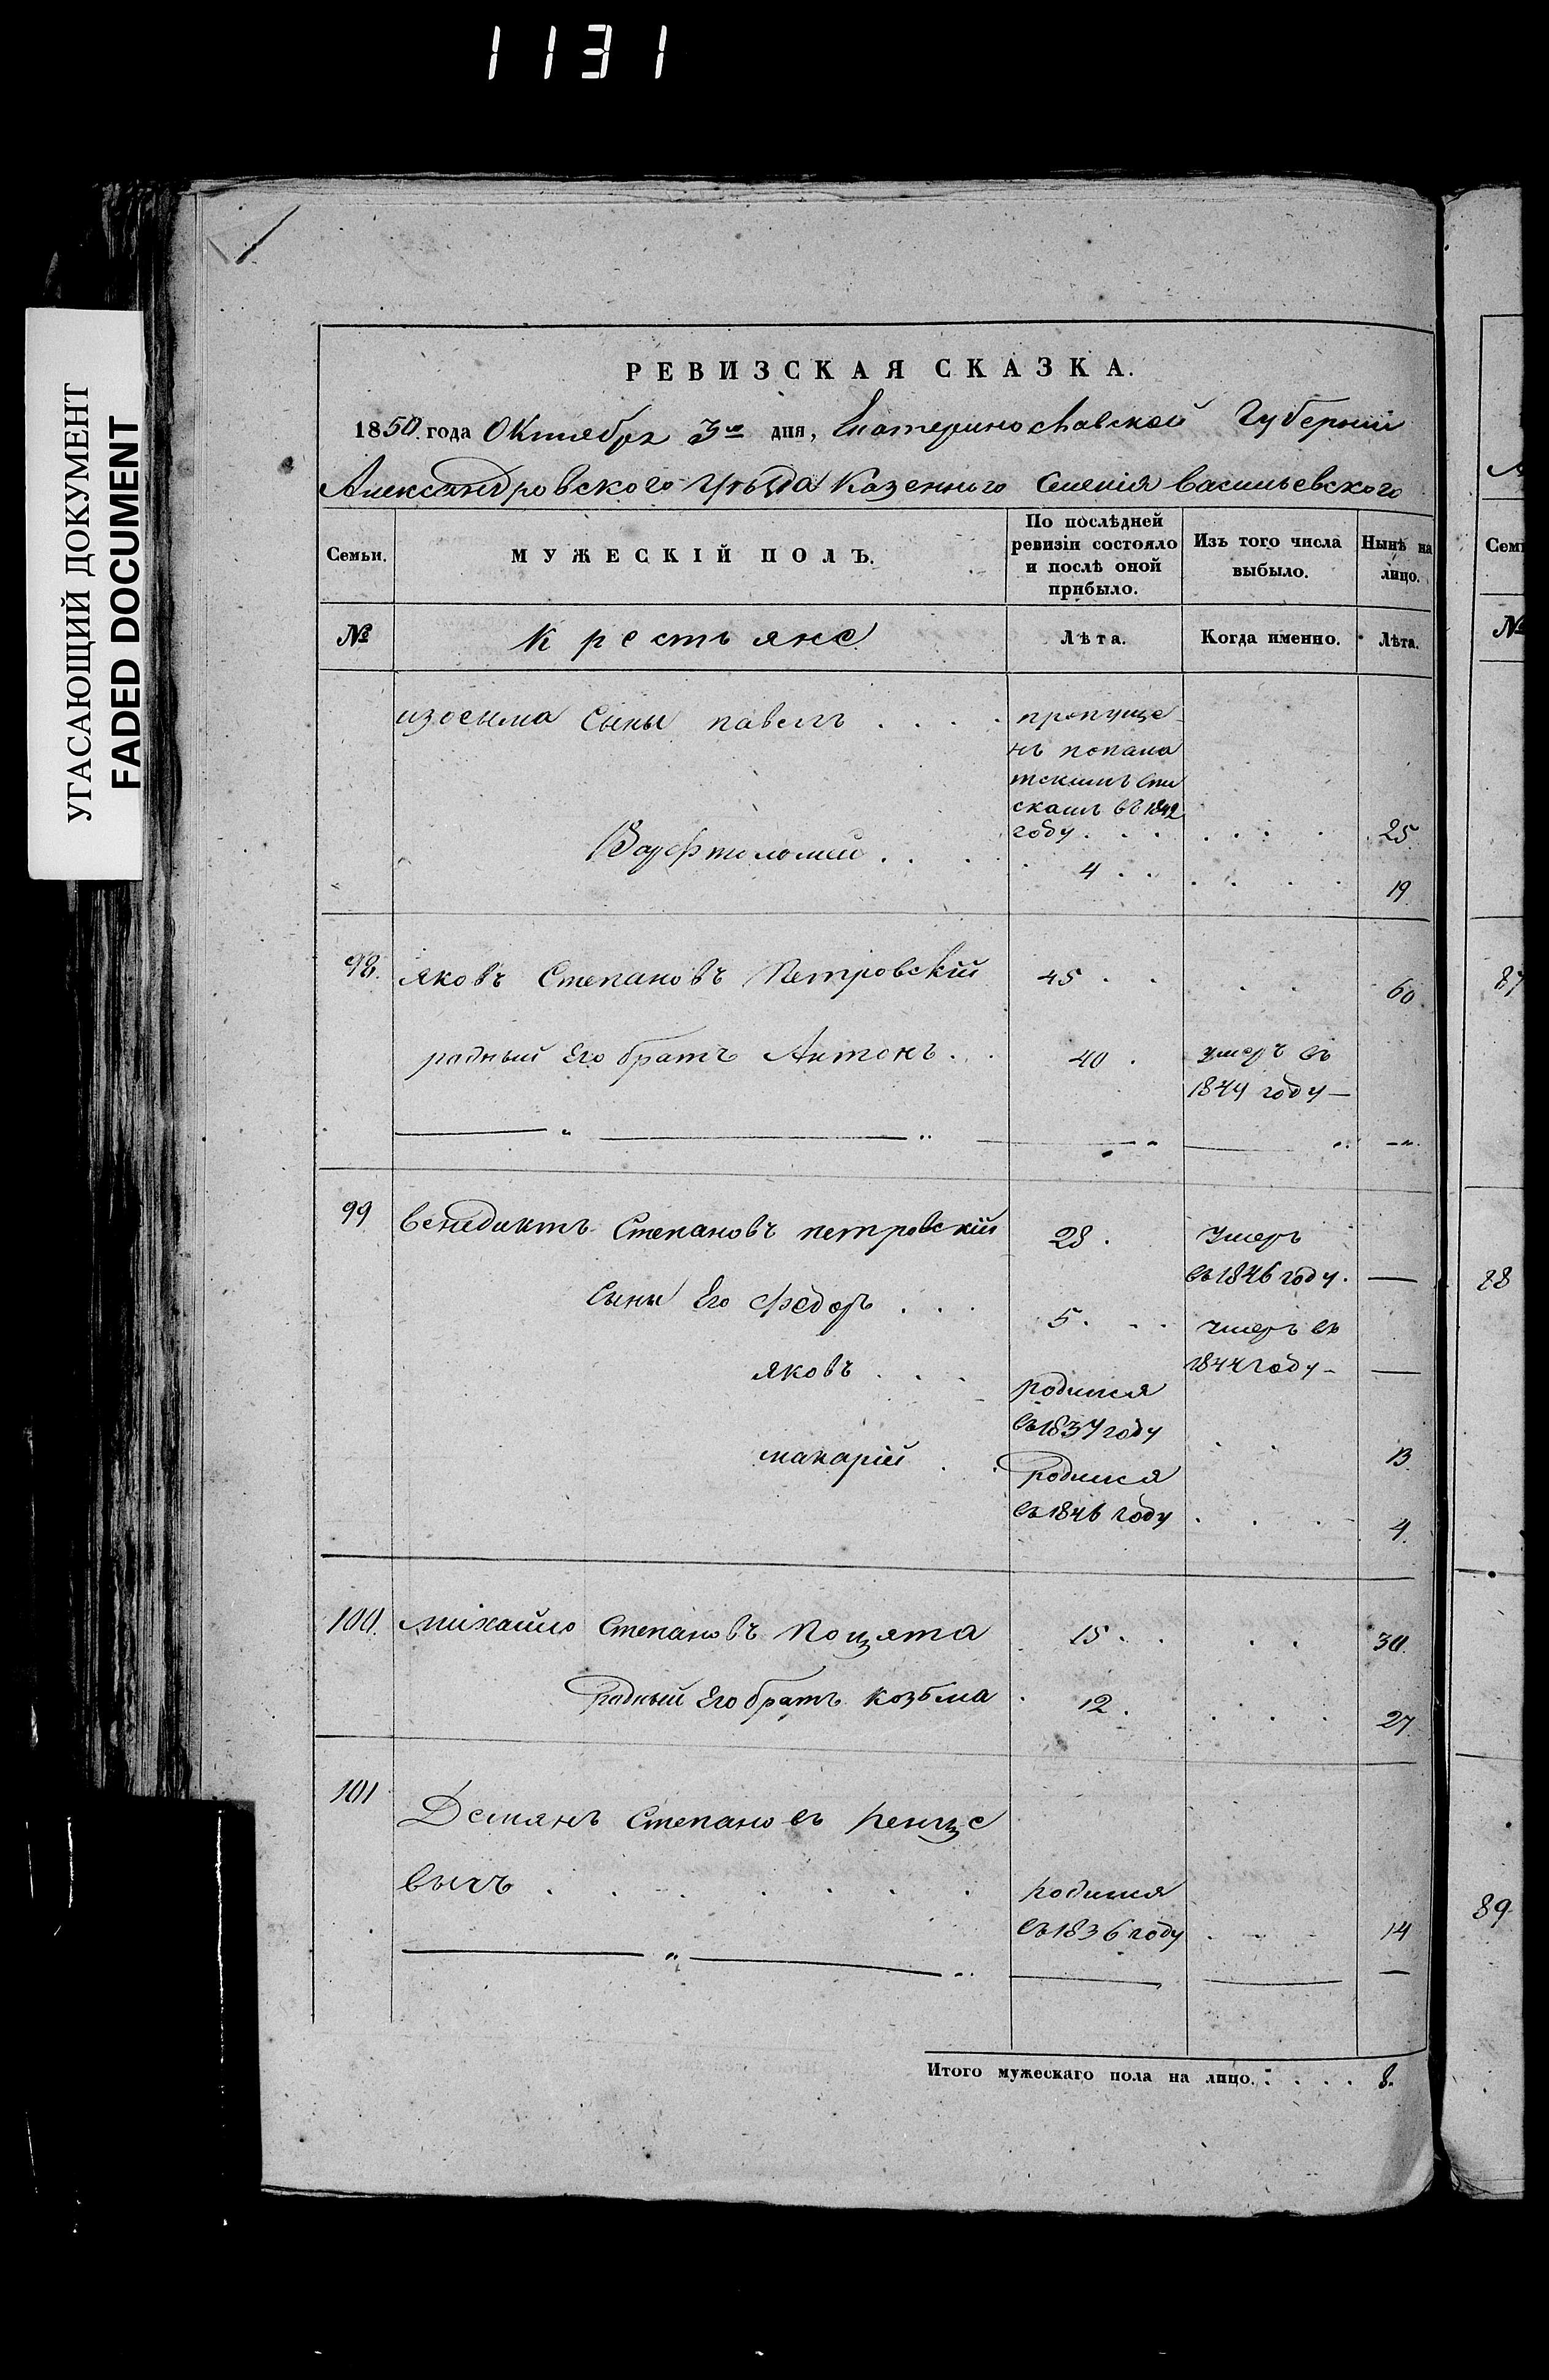 1131
УГАСАЮЩИЙ ДОКУМЕНТ
FADED DOCUMENT
РЕВИЗСКАЯ СКАЗКА.
1850. года Октября 3го дня, Екатеринославской Губерніи
Александровского Уѣзда Казенного Селенія Васильевского
Семьи. МУЖЕСКІЙ ПОЛЪ. По послѣдней ревизіи состояло и послѣ оной прибыло. Изъ того числа выбыло. Нынѣ на лицо.
№ Крестьяне Лѣта. Когда именно. Лѣта.
изосима Сыны павелъ . . . . пропуще-
нъ
скамъ въ 1842
году . . . . . . . 25
Варфтоломей . . . 4 . . . . . . 19
98. яковъ Степановъ Петровскій 45 . . . . 60
родный Его братъ Антонъ . . 40 . умеръ въ
1844 году —
99 венедиктъ Степановъ петровскій 28 . Умеръ
въ 1846 году . —
Сыны Его Федоръ . . . 5 . . . умеръ въ
1844 году — —
яковъ . . . родился
въ 1837 году . . 13
макарій . . родился
въ 1846 году . . . 4.
100. михайло Степановъ 15 . . . . 30.
родный Его братъ козьма . 12 . . . . 27.
101 Демянъ Степановъ
вычъ . . . . . . . родился
въ 1836 году . . . 14
Итого мужескаго пола на лицо. . . . . 8.
Семь
№
87
88
89